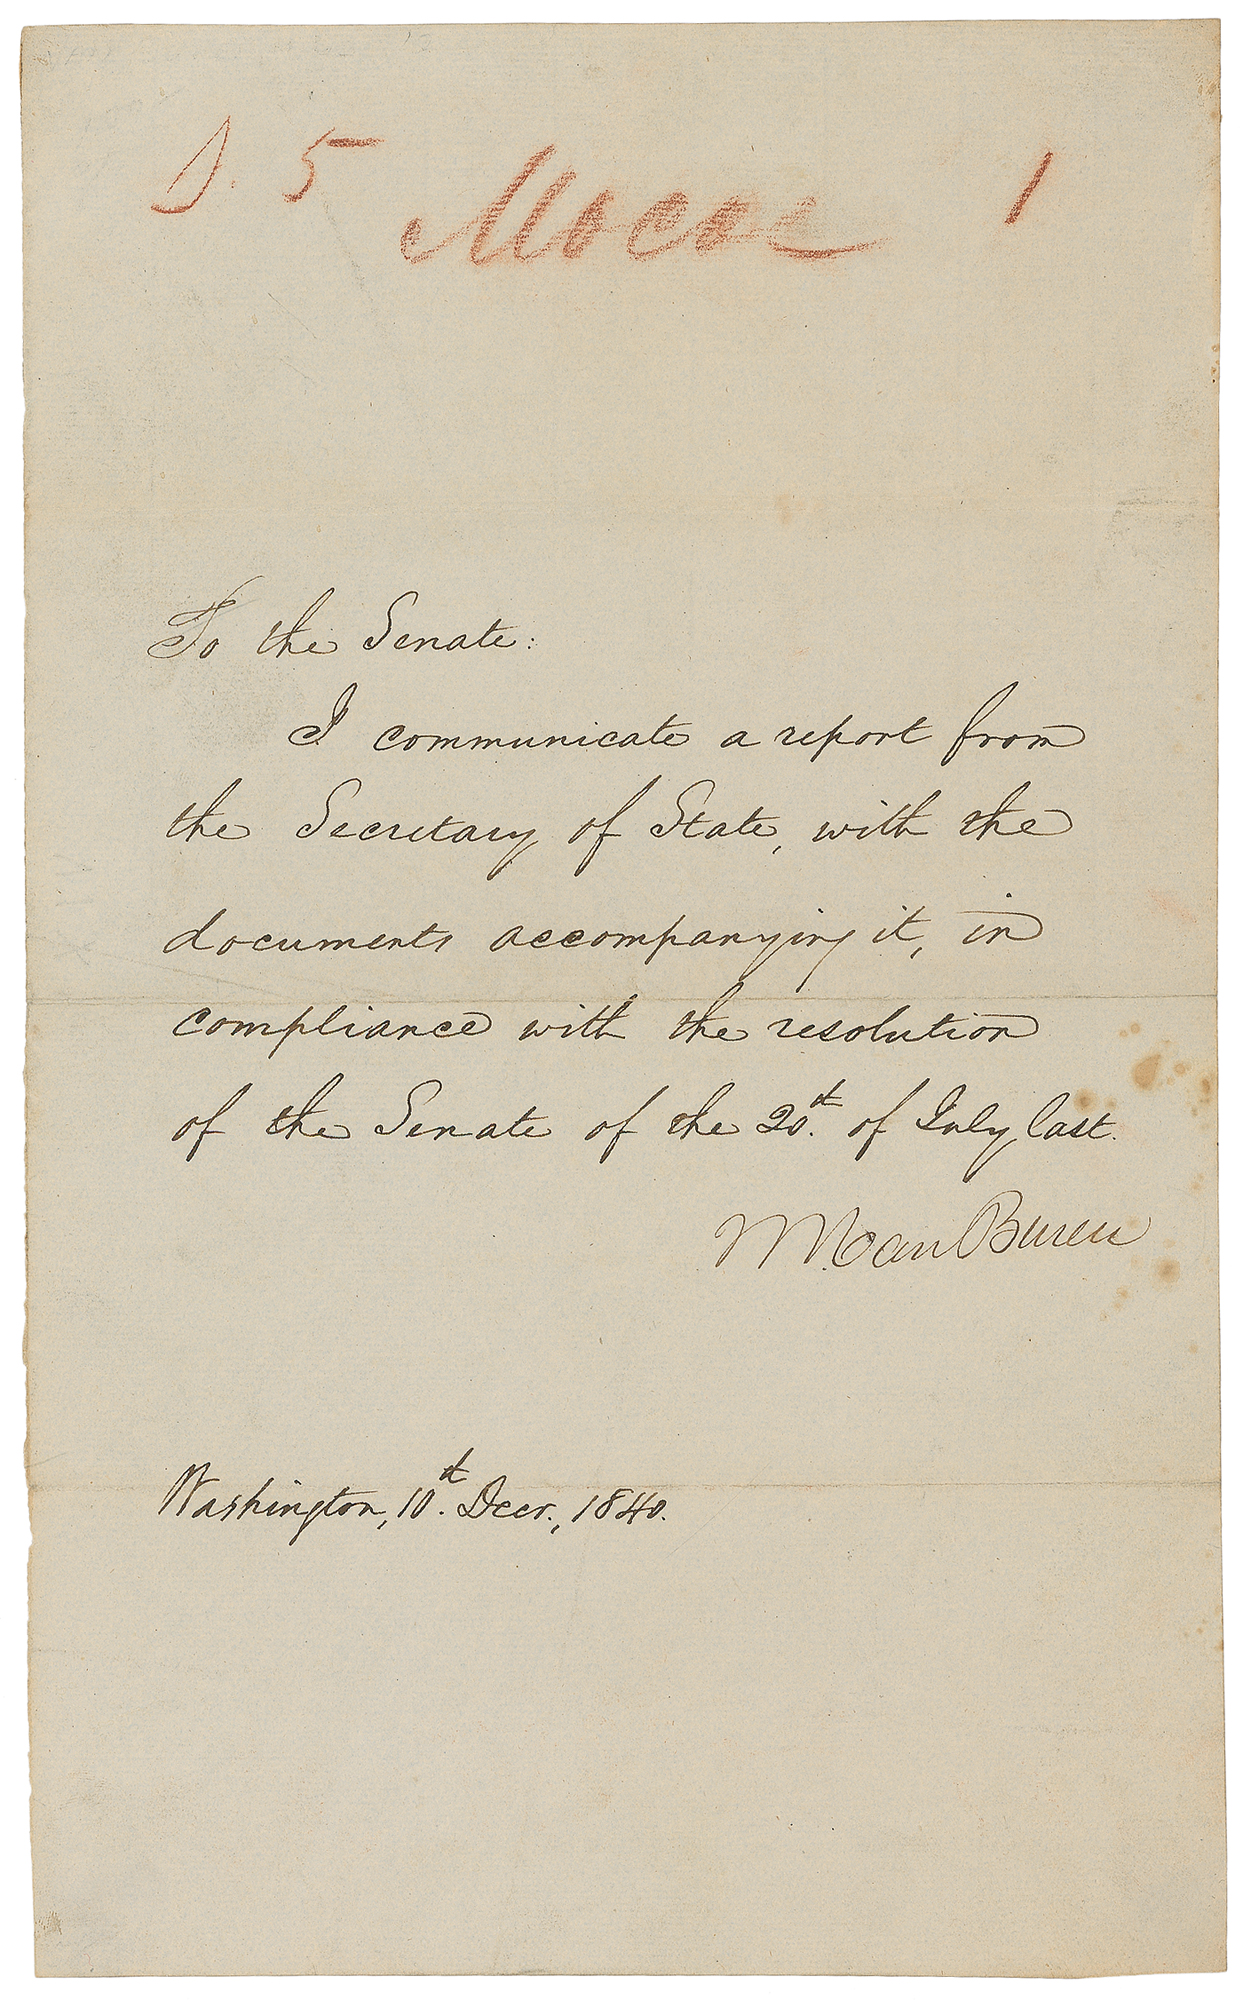 5
1
To the Senate:
I communicate a report from
the Secretary of State, with the
documents accompanying it, in
compliance with the resolution
of the Senate of the 20th. of July last.
M Van Buren
Washington, 10th. Decr., 1840.